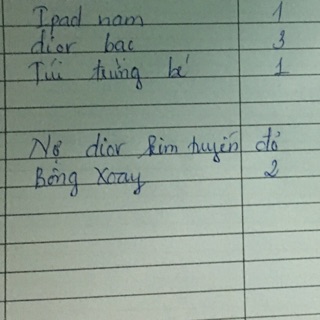 Ipad nam 1
dior bạc 3
Túi trứng bé 1
Nợ dior kim tuyến đỏ
Bông Xoay 2